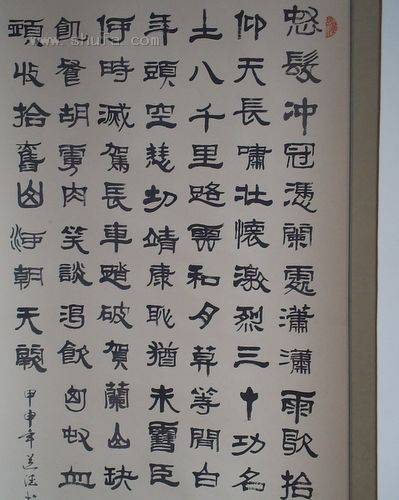 怒髮冲冠憑闌處瀟瀟雨歇抬
仰天長嘯壯懷激烈三十功名
土八千里路雲和月莫等閒白
年頭空悲切靖康恥猶未雪臣
何時滅駕長車踏破賀蘭山缺
飢餐胡虜肉笑談渴飲匈奴血
頭收拾舊山河朝天闕
甲申年